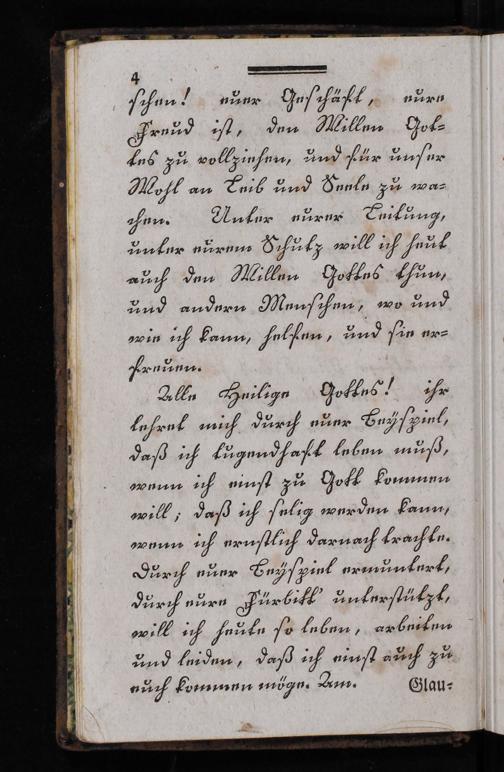 4
schen! euer Geschäft, eure
Freud ist, den Willen Got=
tes zu vollziehen, und für unser
Wohl an Leib und Seele zu wa=
chen. Unter eurer Leitung,
unter eurem Schutz will ich heut
auch den Willen Gottes thun,
und andern Menschen, wo und
wie ich kann, helfen, und sie er=
freuen.
Alle Heilige Gottes! ihr
lehret mich durch euer Beyspiel,
daß ich tugendhaft leben muß,
wenn ich einst zu Gott kommen
will; daß ich selig werden kann,
wenn ich ernstlich darnach trachte.
Durch euer Beyspiel ermuntert,
durch eure Fürbitt' unterstützt,
will ich heute so leben, arbeiten
und leiden, daß ich einst auch zu
euch kommen möge. Am.
Glau=